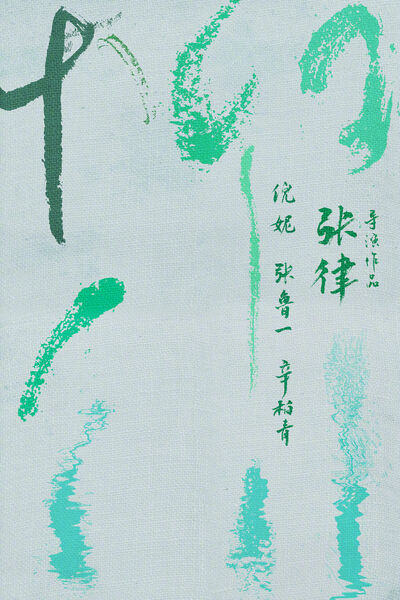 张律
导演作品
倪妮 张鲁一 辛柏青